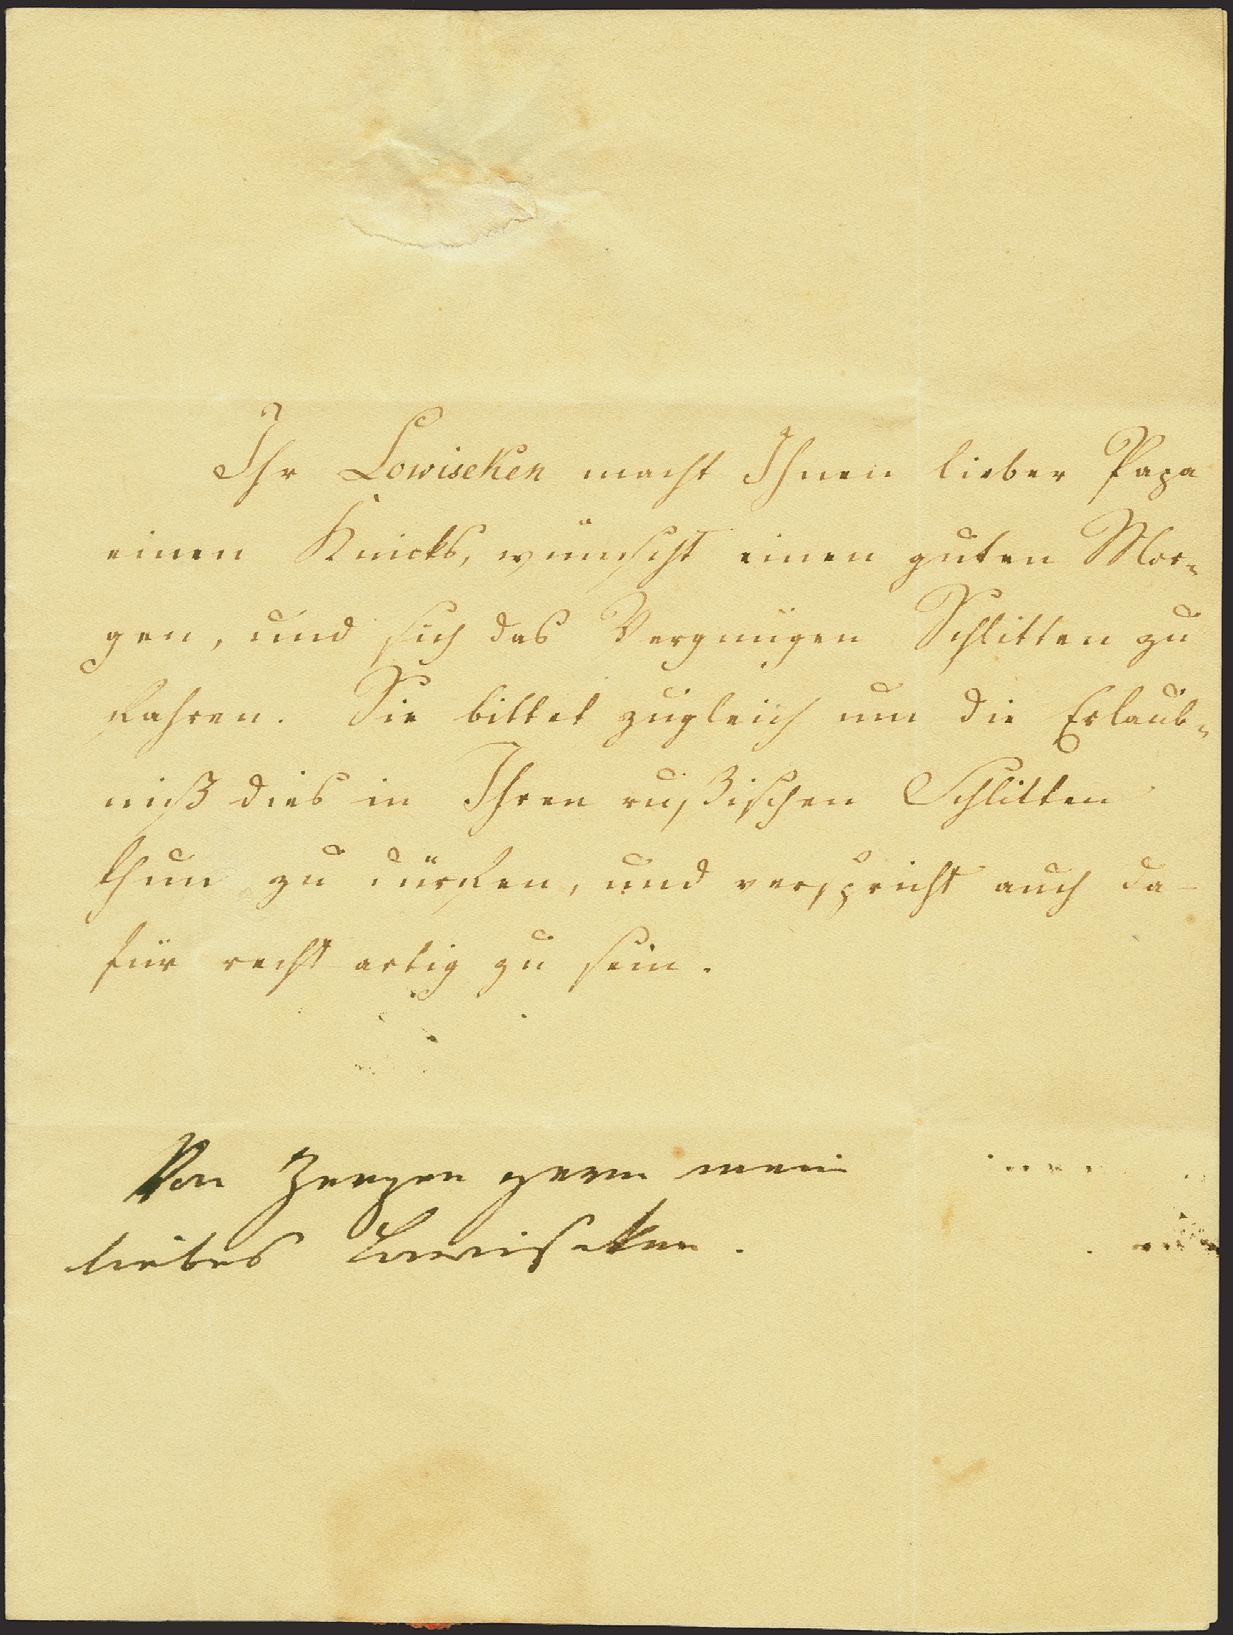 Ihr Lowiseken macht Ihnen lieber Papa
einen Knicks, wünscht einen guten Mor-
gen, und sich das Vergnügen Schlitten zu
fahren. Sie bittet zugleich um die Erlaub-
niß dies in Ihren rußischen Schlitten
thun zu dürfen, und verspricht auch da-
für recht artig zu sein.
Von Herzen gern mein
liebes Lowiseken.